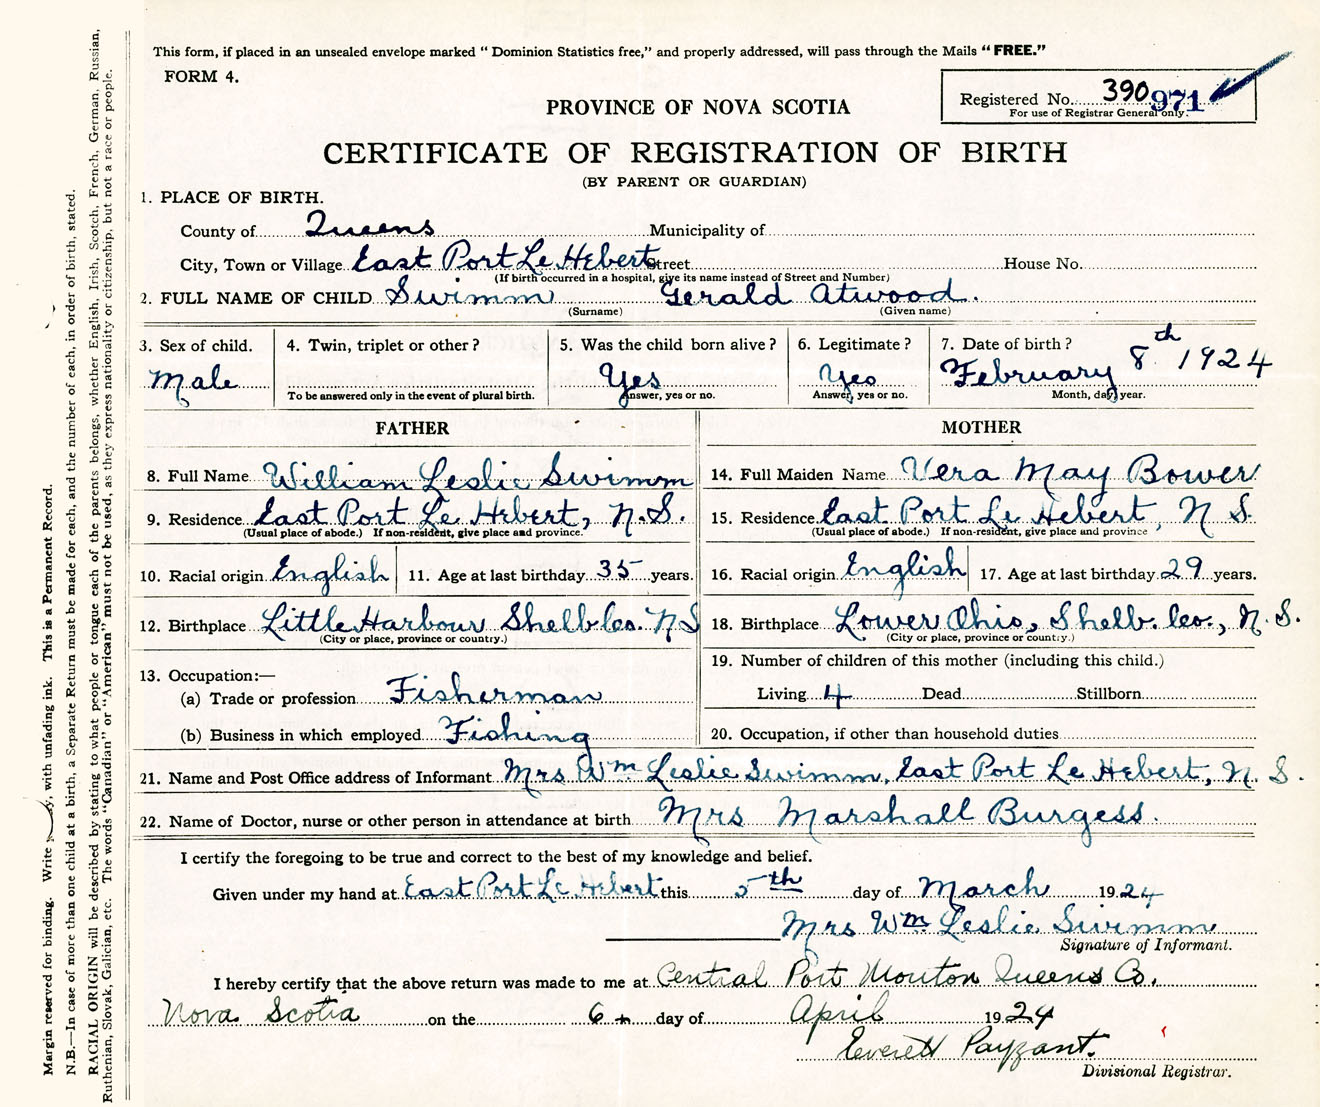 This form, if placed in an unsealed envelope marked "Dominion Statistics free," and properly addressed, will pass through the Mails "FREE."
FORM 4.
Registered No. 390 971
For use of Registrar General only.
PROVINCE OF NOVA SCOTIA
CERTIFICATE OF REGISTRATION OF BIRTH
(BY PARENT OR GUARDIAN)
1. PLACE OF BIRTH.
County of Queens Municipality of
City, Town or Village East Port Le Hebert Street House No.
(If birth occurred in a hospital, give its name instead of Street and Number)
2. FULL NAME OF CHILD Swimm Gerald Atwood.
(Surname) (Given name)
3. Sex of child. 4. Twin, triplet or other? 5. Was the child born alive? 6. Legitimate? 7. Date of birth?
Male Yes Yes February 8th 1924
To be answered only in the event of plural birth. Answer, yes or no. Answer, yes or no. Month, day, year.
FATHER MOTHER
8. Full Name William Leslie Swimm 14. Full Maiden Name Vera May Bower
9. Residence East Port Le Hebert, N.S. 15. Residence East Port Le Hebert, N S.
(Usual place of abode.) If non-resident, give place and province. (Usual place of abode.) If non-resident, give place and province
10. Racial origin English 11. Age at last birthday 35 years. 16. Racial origin English 17. Age at last birthday 29 years.
12. Birthplace Little Harbour Shelb Co. N S 18. Birthplace Lower Ohio, Shelb. Co., N. S.
(City or place, province or country.) (City or place, province or country.)
13. Occupation:— 19. Number of children of this mother (including this child.)
(a) Trade or profession Fisherman Living 4 Dead Stillborn
(b) Business in which employed Fishing 20. Occupation, if other than household duties
21. Name and Post Office address of Informant Mrs Wm Leslie Swimm, East Port Le Hebert, N. S.
22. Name of Doctor, nurse or other person in attendance at birth Mrs Marshall Burgess.
I certify the foregoing to be true and correct to the best of my knowledge and belief.
Given under my hand at East Port Le Hebert this 5th day of March 1924
Mrs Wm Leslie Swimm
Signature of Informant.
I hereby certify that the above return was made to me at Central Port Mouton Queens Co.
Nova Scotia on the 6 day of April 1924
Everett Payzant.
Divisional Registrar.
Margin reserved for binding. Write with unfading ink. This is a Permanent Record.
N.B.—In case of more than one child at a birth, a Separate Return must be made for each, and the number of each, in order of birth, stated.
RACIAL ORIGIN will be described by stating to what people or tongue each of the parents belongs, whether English, Irish, Scotch, French, German, Russian,
Ruthenian, Slovak, Galician, etc. The words "Canadian" or "American" must not be used, as they express nationality or citizenship, but not a race or people.